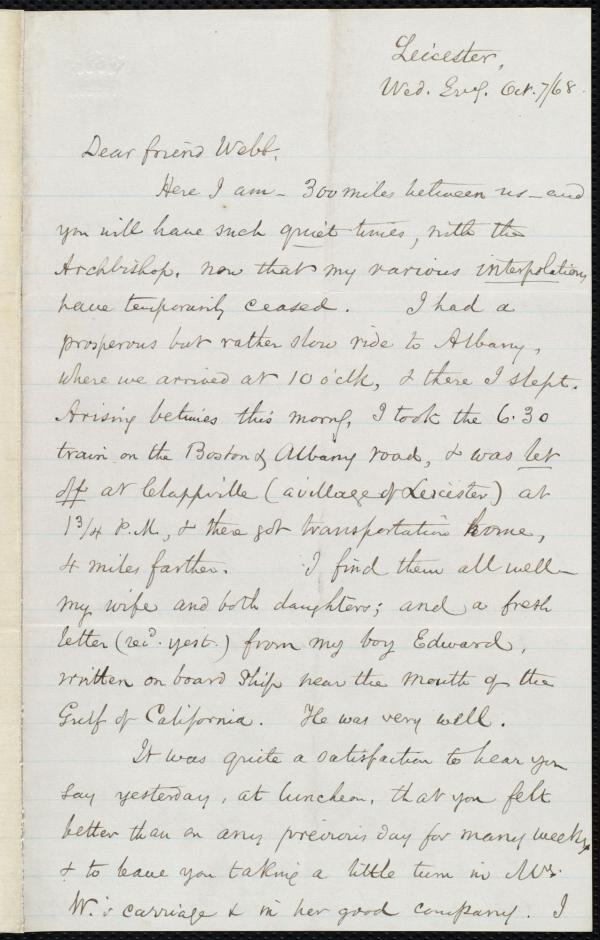 Leicester,
Wed. Evg. Oct. 7/68.
Dear friend Webb,
Here I am – 300 miles between us – and
you will have such quiet times, with the
Archbishop, now that my various interpolations
have temporarily ceased. I had a
prosperous but rather slow ride to Albany,
where we arrived at 10 o'clk, & there I slept.
Arising betimes this morng, I took the 6.30
train on the Boston & Albany road, & was let
off at Clappville (a village of Leicester) at
1 3/4 P.M., & there got transportation home,
4 miles farther. I find them all well –
my wife and both daughters; and a fresh
letter (recd. yest.) from my boy Edward,
written on board ship near the mouth of the
Gulf of California. He was very well.
It was quite a satisfaction to hear you
say yesterday, at luncheon, that you felt
better than on any previous day for many weeks,
& to leave you taking a little turn in Mrs.
W.'s carriage & in her good company. I